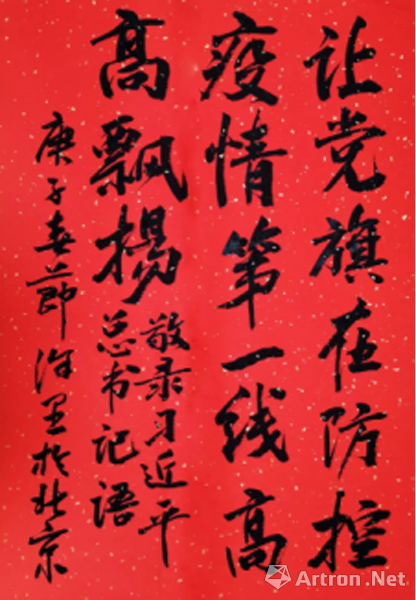 让党旗在防控
疫情第一线高
高飘揚
敬录习近平
总书记语
庚子春節於北京
Artron.Net